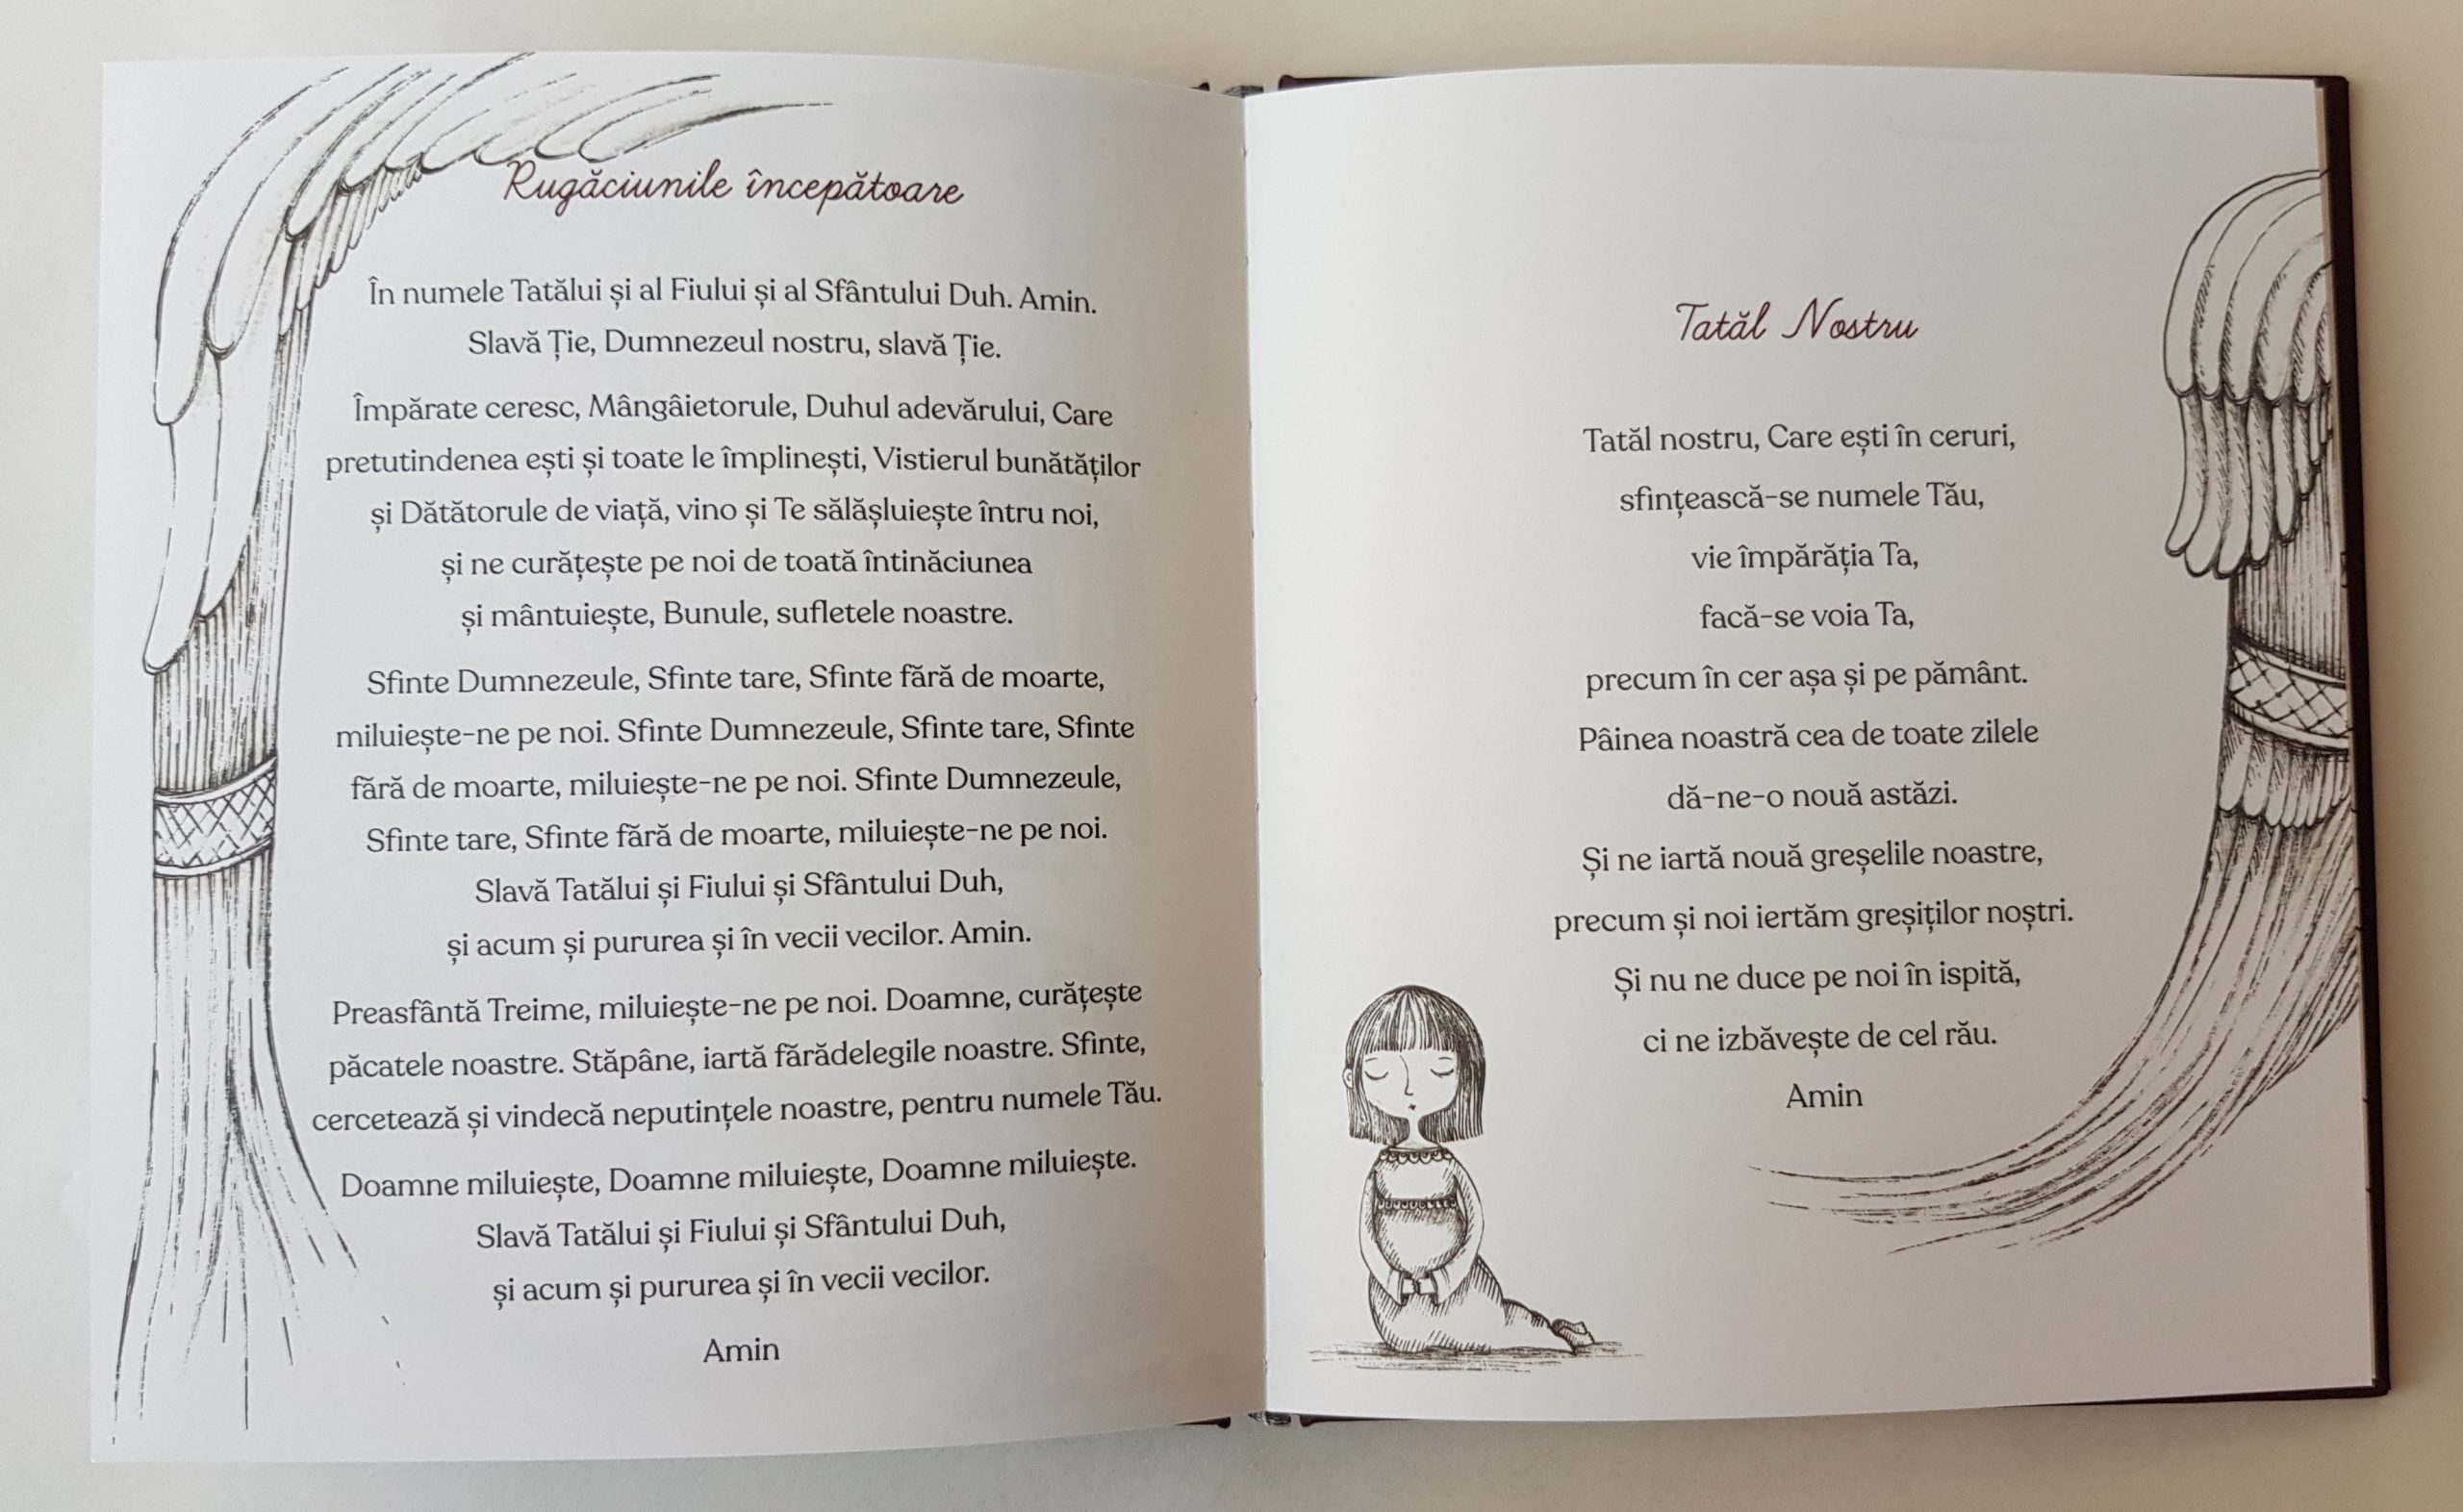 Rugăciunile începătoare
În numele Tatălui și al Fiului și al Sfântului Duh. Amin.
Slavă Ție, Dumnezeul nostru, slavă Ție.
Împărate ceresc, Mângâietorule, Duhul adevărului, Care
pretutindenea ești și toate le împlinești, Vistierul bunătăților
și Dătătorule de viață, vino și Te sălășluiește întru noi,
și ne curățește pe noi de toată întinăciunea
și mântuiește, Bunule, sufletele noastre.
Sfinte Dumnezeule, Sfinte tare, Sfinte fără de moarte,
miluiește-ne pe noi. Sfinte Dumnezeule, Sfinte tare, Sfinte
fără de moarte, miluiește-ne pe noi. Sfinte Dumnezeule,
Sfinte tare, Sfinte fără de moarte, miluiește-ne pe noi.
Slavă Tatălui și Fiului și Sfântului Duh,
și acum și pururea și în vecii vecilor. Amin.
Preasfântă Treime, miluiește-ne pe noi. Doamne, curățește
păcatele noastre. Stăpâne, iartă fărădelegile noastre. Sfinte,
cercetează și vindecă neputințele noastre, pentru numele Tău.
Doamne miluiește, Doamne miluiește, Doamne miluiește.
Slavă Tatălui și Fiului și Sfântului Duh,
și acum și pururea și în vecii vecilor.
Amin
Tatăl Nostru
Tatăl nostru, Care ești în ceruri,
sfințească-se numele Tău,
vie împărăția Ta,
facă-se voia Ta,
precum în cer așa și pe pământ.
Pâinea noastră cea de toate zilele
dă-ne-o nouă astăzi.
Și ne iartă nouă greșelile noastre,
precum și noi iertăm greșiților noștri.
Și nu ne duce pe noi în ispită,
ci ne izbăvește de cel rău.
Amin